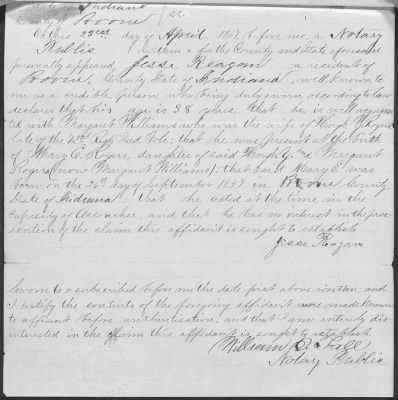 State of Indiana
County of Boone } SS.
On this 22nd day of April 1868, before me, a Notary
Public within & for the County and State aforesaid
personally appeared, Jesse Reagan a resident of
Boone, County State of Indiana, well known to
me as a credible person, who being duly sworn according to law
declares that his age is 38 years, that he is well acquain
ted with Margaret Williams who was the wife of Hugh Rogers
late of the Regt Ind Vols; that she was present at the birth
of Mary E. Rogers, daughter of said Hugh & Margaret
Rogers (now Margaret Williams); that said Mary E. was
born on the 26th day of September 1857 in Boone County
State of Indiana that he acted at the time in the
Capacity of and that he has no interest in the prose
cution of the claim this affidavit is sought to establish
Jesse Reagan
Sworn to & subscribed before me the date first above written and
I certify the contents of the foregoing affidavit were made known
to affiant before authentication, and that I am entirely dis-
interested in the claim this affidavit is sought to establish
William Fall
Notary Public